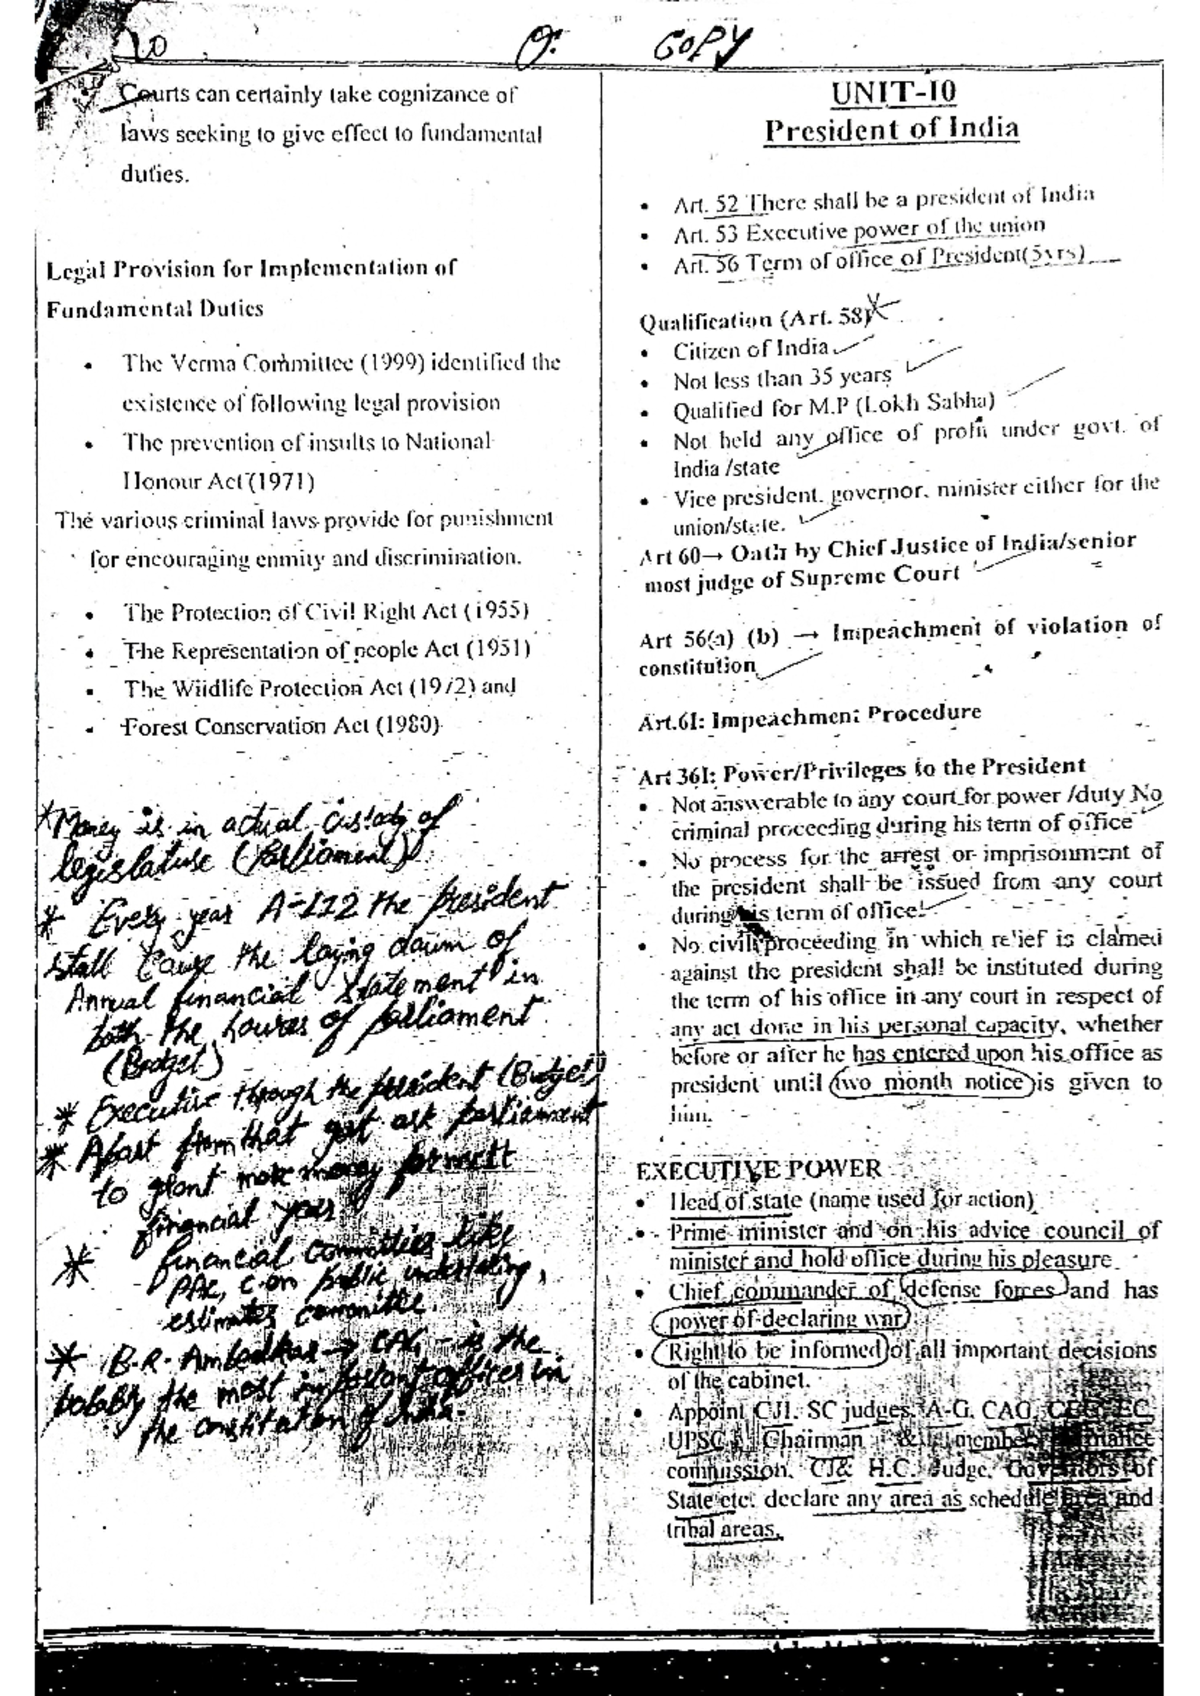 10
O. COPY
Courts can certainly take cognizance of
laws seeking to give effect to fundamental
duties.
Legal Provision for Implementation of
Fundamental Duties
• The Verma Committee (1999) identified the
existence of following legal provision
• The prevention of insults to National
Honour Act (1971)
The various criminal laws provide for punishment
for encouraging enmity and discrimination.
• The Protection of Civil Right Act (1955)
• The Representation of people Act (1951)
• The Wildlife Protection Act (1972) and
• Forest Conservation Act (1980)
* Money is in actual custody of
legislature (Parliament)
* Every year A-112 the president
shall cause the laying down of
Annual financial statement in
both the houses of parliament
(Budget)
* Executive through the president (Budget)
* Apart from that govt ask parliament
to grant more money for nett
financial year
* financial committies like
PAC, c.on public undertaking,
estimates committe.
* B.R. Ambedkar → CAG - is the
bobably the most important officer in
the constitution of India.
UNIT-10
President of India
• Art. 52 There shall be a president of India
• Art. 53 Executive power of the union
• Art. 56 Term of office of President(5yrs)
Qualification (Art. 58)
• Citizen of India
• Not less than 35 years
• Qualified for M.P (Lokh Sabha)
• Not held any office of profit under govt. of
India /state
• Vice president, governor, minister either for the
union/state.
Art 60→ Oath by Chief Justice of India/senior
most judge of Supreme Court
Art 56(a) (b) → Impeachment of violation of
constitution
Art.61: Impeachment Procedure
Art 361: Power/Privileges to the President
• Not answerable to any court for power /duty No
criminal proceeding during his term of office
• No process for the arrest or imprisonment of
the president shall be issued from any court
during his term of office.
• No civil proceeding in which relief is clamed
against the president shall be instituted during
the term of his office in any court in respect of
any act done in his personal capacity, whether
before or after he has entered upon his office as
president until two month notice is given to
him.
EXECUTIVE POWER
• Head of state (name used for action)
• Prime minister and on his advice council of
minister and hold office during his pleasure.
• Chief commander of defense forces and has
power of declaring war
• Right to be informed of all important decisions
of the cabinet.
• Appoint CJI, SC judges, A-G, CAG, CEC, EC,
UPSC Chairman & member, finance
commission, CJ& H.C. Judge, Governors of
State etc. declare any area as schedule area and
tribal areas.